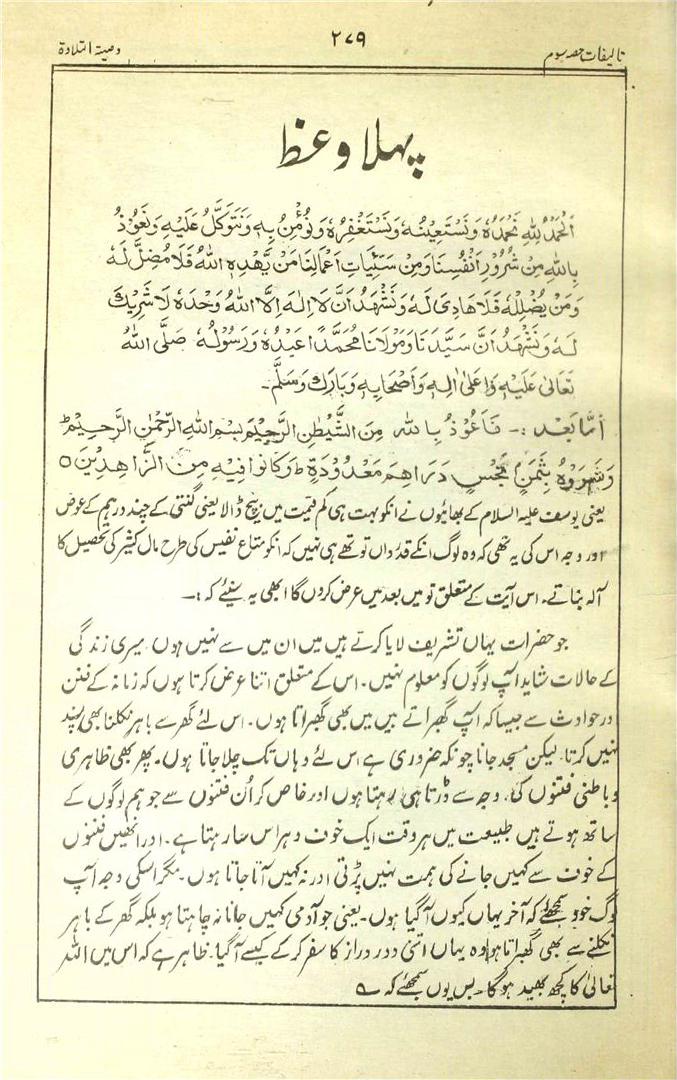 تالیفات حصہ سوم
۲۷۹
وصیۃ التلاوۃ
پہلا وعظ
اَلْحَمْدُ لِلّٰہِ نَحْمَدُہٗ وَنَسْتَعِیْنُہٗ وَنَسْتَغْفِرُہٗ وَنُؤْمِنُ بِہٖ وَنَتَوَکَّلُ عَلَیْہِ وَنَعُوْذُ
بِاللّٰہِ مِنْ شُرُوْرِ اَنْفُسِنَا وَمِنْ سَیِّئَاتِ اَعْمَالِنَا مَنْ یَّھْدِہِ اللّٰہُ فَلَا مُضِلَّ لَہٗ
وَمَنْ یُّضْلِلْہُ فَلَا ھَادِیَ لَہٗ وَنَشْھَدُ اَنْ لَّا اِلٰہَ اِلَّا اللّٰہُ وَحْدَہٗ لَا شَرِیْکَ
لَہٗ وَنَشْھَدُ اَنَّ سَیِّدَنَا وَمَوْلَانَا مُحَمَّدًا عَبْدُہٗ وَرَسُوْلُہٗ صَلَّی اللّٰہُ
تَعَالٰی عَلَیْہِ وَاعَلیٰ اٰلِہٖ وَاَصْحَابِہٖ وَبَارَکَ وَسَلَّمَ۔
اَمَّا بَعْد :۔ فَاَعُوْذُ بِاللّٰہِ مِنَ الشَّیْطٰنِ الرَّجِیْمِ بِسْمِ اللّٰہِ الرَّحْمٰنِ الرَّحِیْمِ ط
وَشَرَوْہُ بِثَمَنٍ بَخْسٍ دَرَاھِمَ مَعْدُوْدَۃٍ ط وَکَانُوْا فِیْہِ مِنَ الزَّاھِدِیْنَ ○
یعنی یوسف علیہ السلام کے بھائیوں نے انکو بہت ہی کم قیمت میں بیچ ڈالا یعنی گنتی کے چند درہم کے عوض
اور وجہ اس کی یہ تھی کہ وہ لوگ انکے قدرداں تو تھے ہی نہیں کہ انکو متاع نفیس کی طرح مال کثیر کی تحصیل کا
آلہ بناتے۔ اس آیت کے متعلق تو میں بعد میں عرض کروں گا ابھی یہ سنیئے کہ :۔
جو حضرات یہاں تشریف لایا کرتے ہیں میں ان میں سے نہیں ہوں۔ میری زندگی
کے حالات شاید آپ لوگوں کو معلوم نہیں۔ اس کے متعلق اتنا عرض کرتا ہوں کہ زمانہ کے فتن
اور حوادث سے جیسا کہ آپ گھبراتے ہیں میں بھی گھبراتا ہوں۔ اس لئے گھر سے باہر نکلنا بھی پسند
نہیں کرتا۔ لیکن مسجد جانا چونکہ ضروری ہے اس لئے وہاں تک چلا جاتا ہوں۔ پھر بھی ظاہری
و باطنی فتنوں کی وجہ سے ڈرتا ہی رہتا ہوں اور خاص کر اُن فتنوں سے جو ہم لوگوں کے
ساتھ ہوتے ہیں طبیعت میں ہر وقت ایک خوف و ہراس سا رہتا ہے۔ اور انھیں فتنوں
کے خوف سے کہیں جانے کی ہمت نہیں پڑتی اور نہ کہیں آتا جاتا ہوں۔ مگر اسکی وجہ آپ
لوگ خود سمجھئے کہ آخر یہاں کیوں آگیا ہوں۔ یعنی جو آدمی کہیں جانا نہ چاہتا ہو بلکہ گھر کے باہر
نکلنے سے بھی گھبراتا ہو وہ یہاں اتنی دور دراز کا سفر کر کے کیسے آگیا۔ ظاہر ہے کہ اس میں اللہ
تعالیٰ کا کچھ بھید ہوگا۔ بس یوں سمجھئے کہ ؎